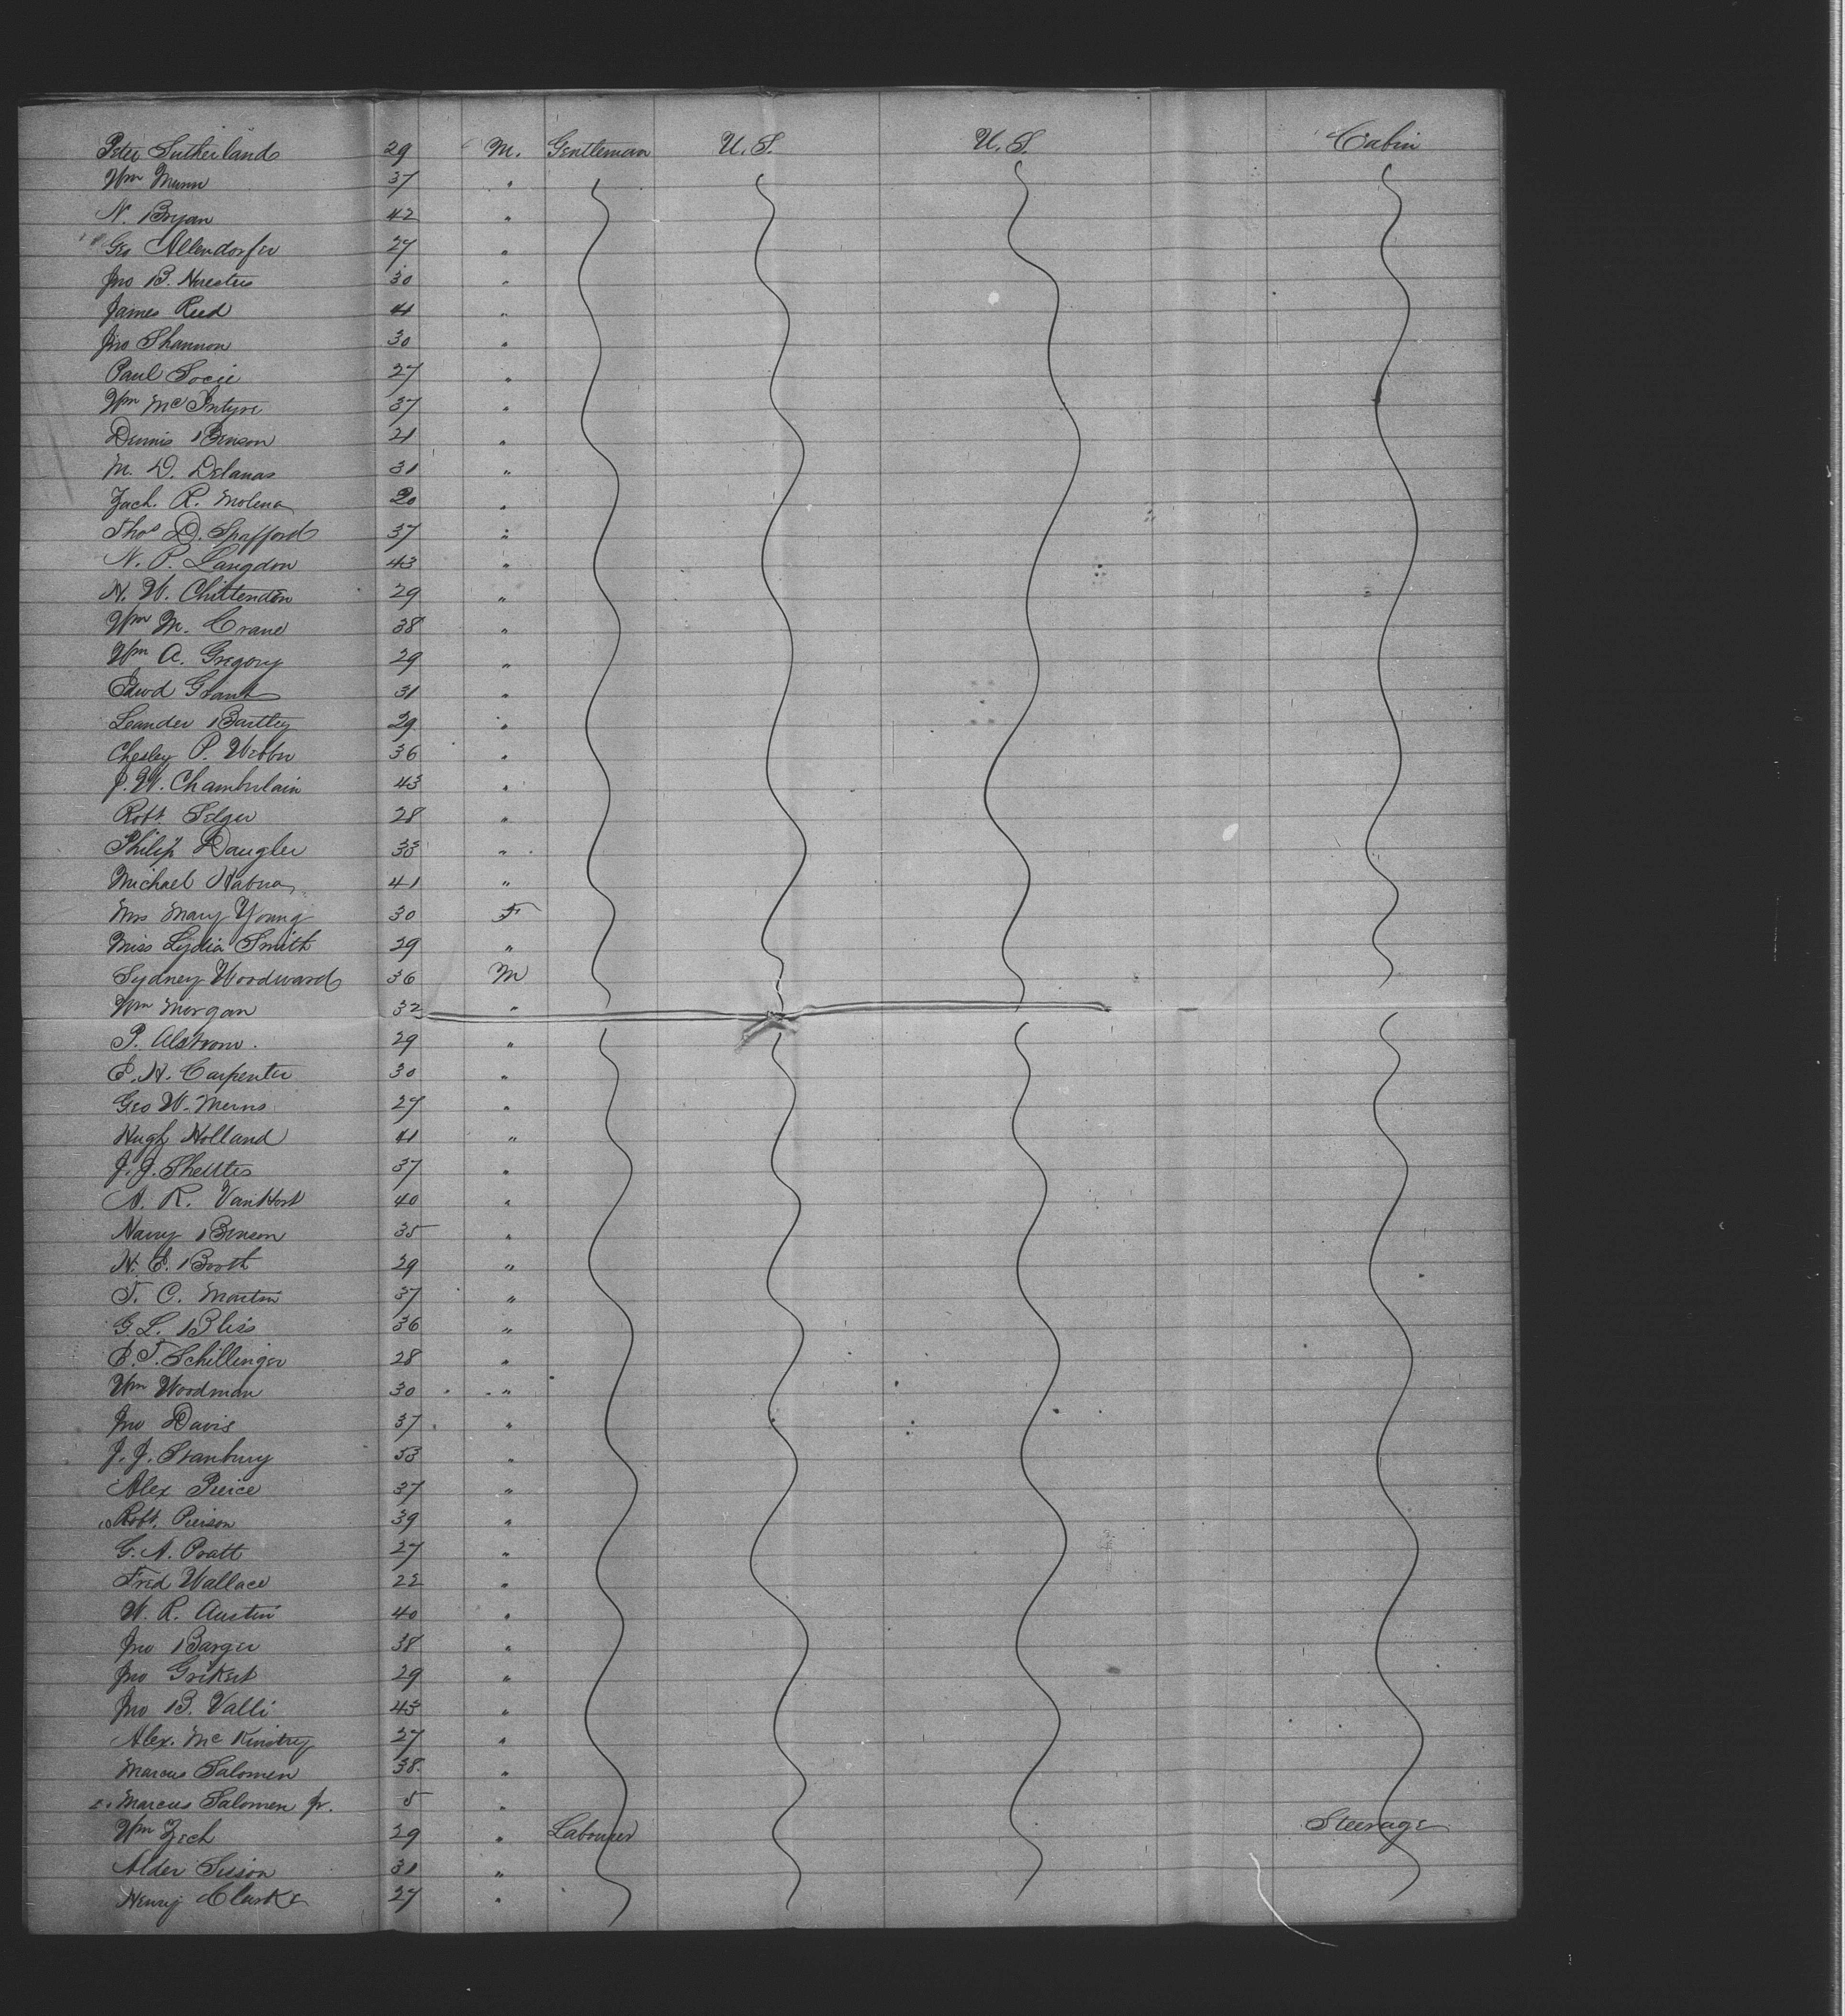 Peter Sutherland 29 M. Gentleman U.S. U.S. Cabin
Wm Munn 37 "
N. Bryan 42 "
Geo Allendorfer 27 "
Jno B. 30 "
James Reed 41 "
Jno Shannon 30 "
Paul Socie 27 "
Wm McIntyre 37 "
Dennis Benson 21 "
M. D. Delanas 31 "
Zach. R. Molena 20 "
Thos D. Spafford 37 "
N. P. Langdon 43 "
H. W. Chittenden 29 "
Wm M. Crane 38 "
Wm A. Gregory 29 "
Edwd Grant 31 "
Leander Bartley 29 "
Chesley P. Webber 36 "
J. W. Chamberlain 43 "
Robt. Selger 28 "
Philip Daugler 33 "
Michael 41 "
Mrs Mary Young 30 F
Miss Lydia Smith 29 "
Sydney Woodward 36 M
Wm Morgan 32 "
P. Alstrom. 29 "
E. H. Carpenter 30 "
Geo W. Merns 27 "
Hugh Holland 41 "
J. J. 37 "
A. R. VanHost 40 "
Harry Benson 35 "
H. E. Booth 29 "
T. C. Martin 37 "
G. L. Bliss 36 "
E. T. Schillinger 28 "
Wm Woodman 30 "
Jno Davis 37 "
J. J. Stanbury 53 "
Alex Pierce 37 "
Robt. Pierson 39 "
G. A. Pratt 27 "
Fred Wallace 22 "
W. R. Austin 40 "
Jno Barger 38 "
Jno Grikest 29 "
Jno B. Valli 43 "
Alex. McKinstry 27 "
Marcus Salomen 38 "
Marcus Salomen Jr. 5 "
Wm Zech 29 " Labourer Steerage
Alder Sieson 31 "
Henry Clarke 27 "